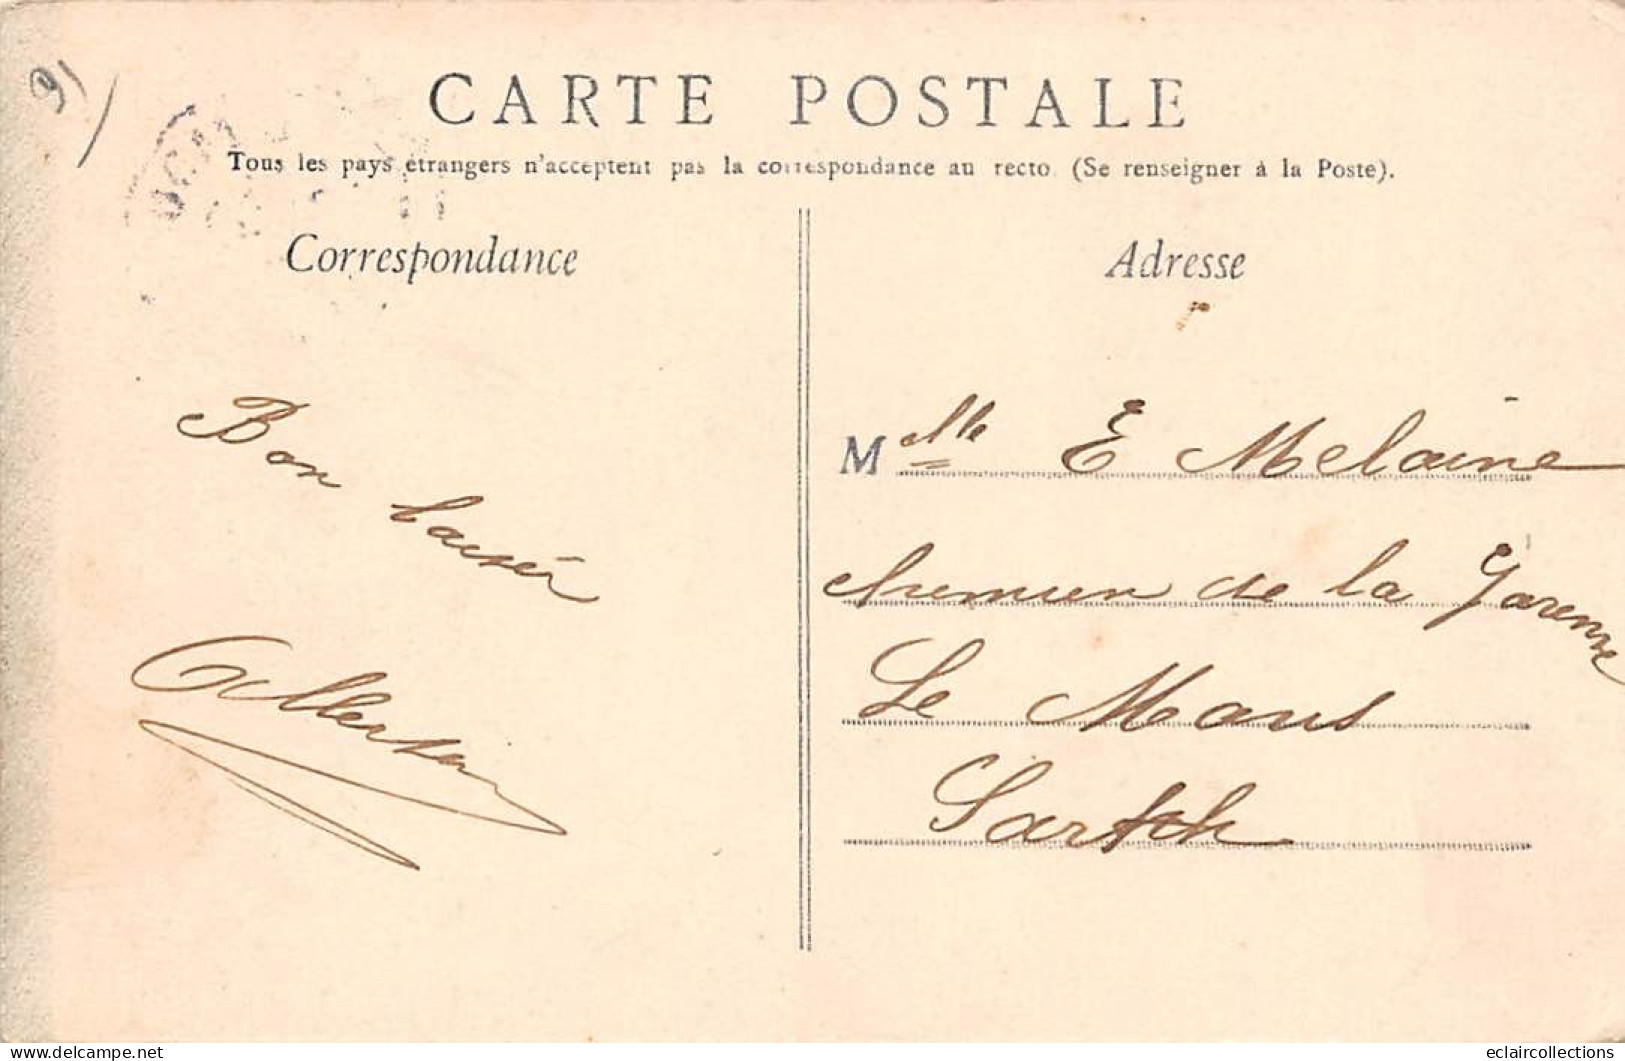 91
CARTE POSTALE
Tous les pays étrangers n'acceptent pas la correspondance au recto. (Se renseigner à la Poste).
Correspondance
Bon baiser
Adresse
Melle E Melaine
chemin de la Garenne
Le Mans
Sarthe
delcampe.net
eclaircollections